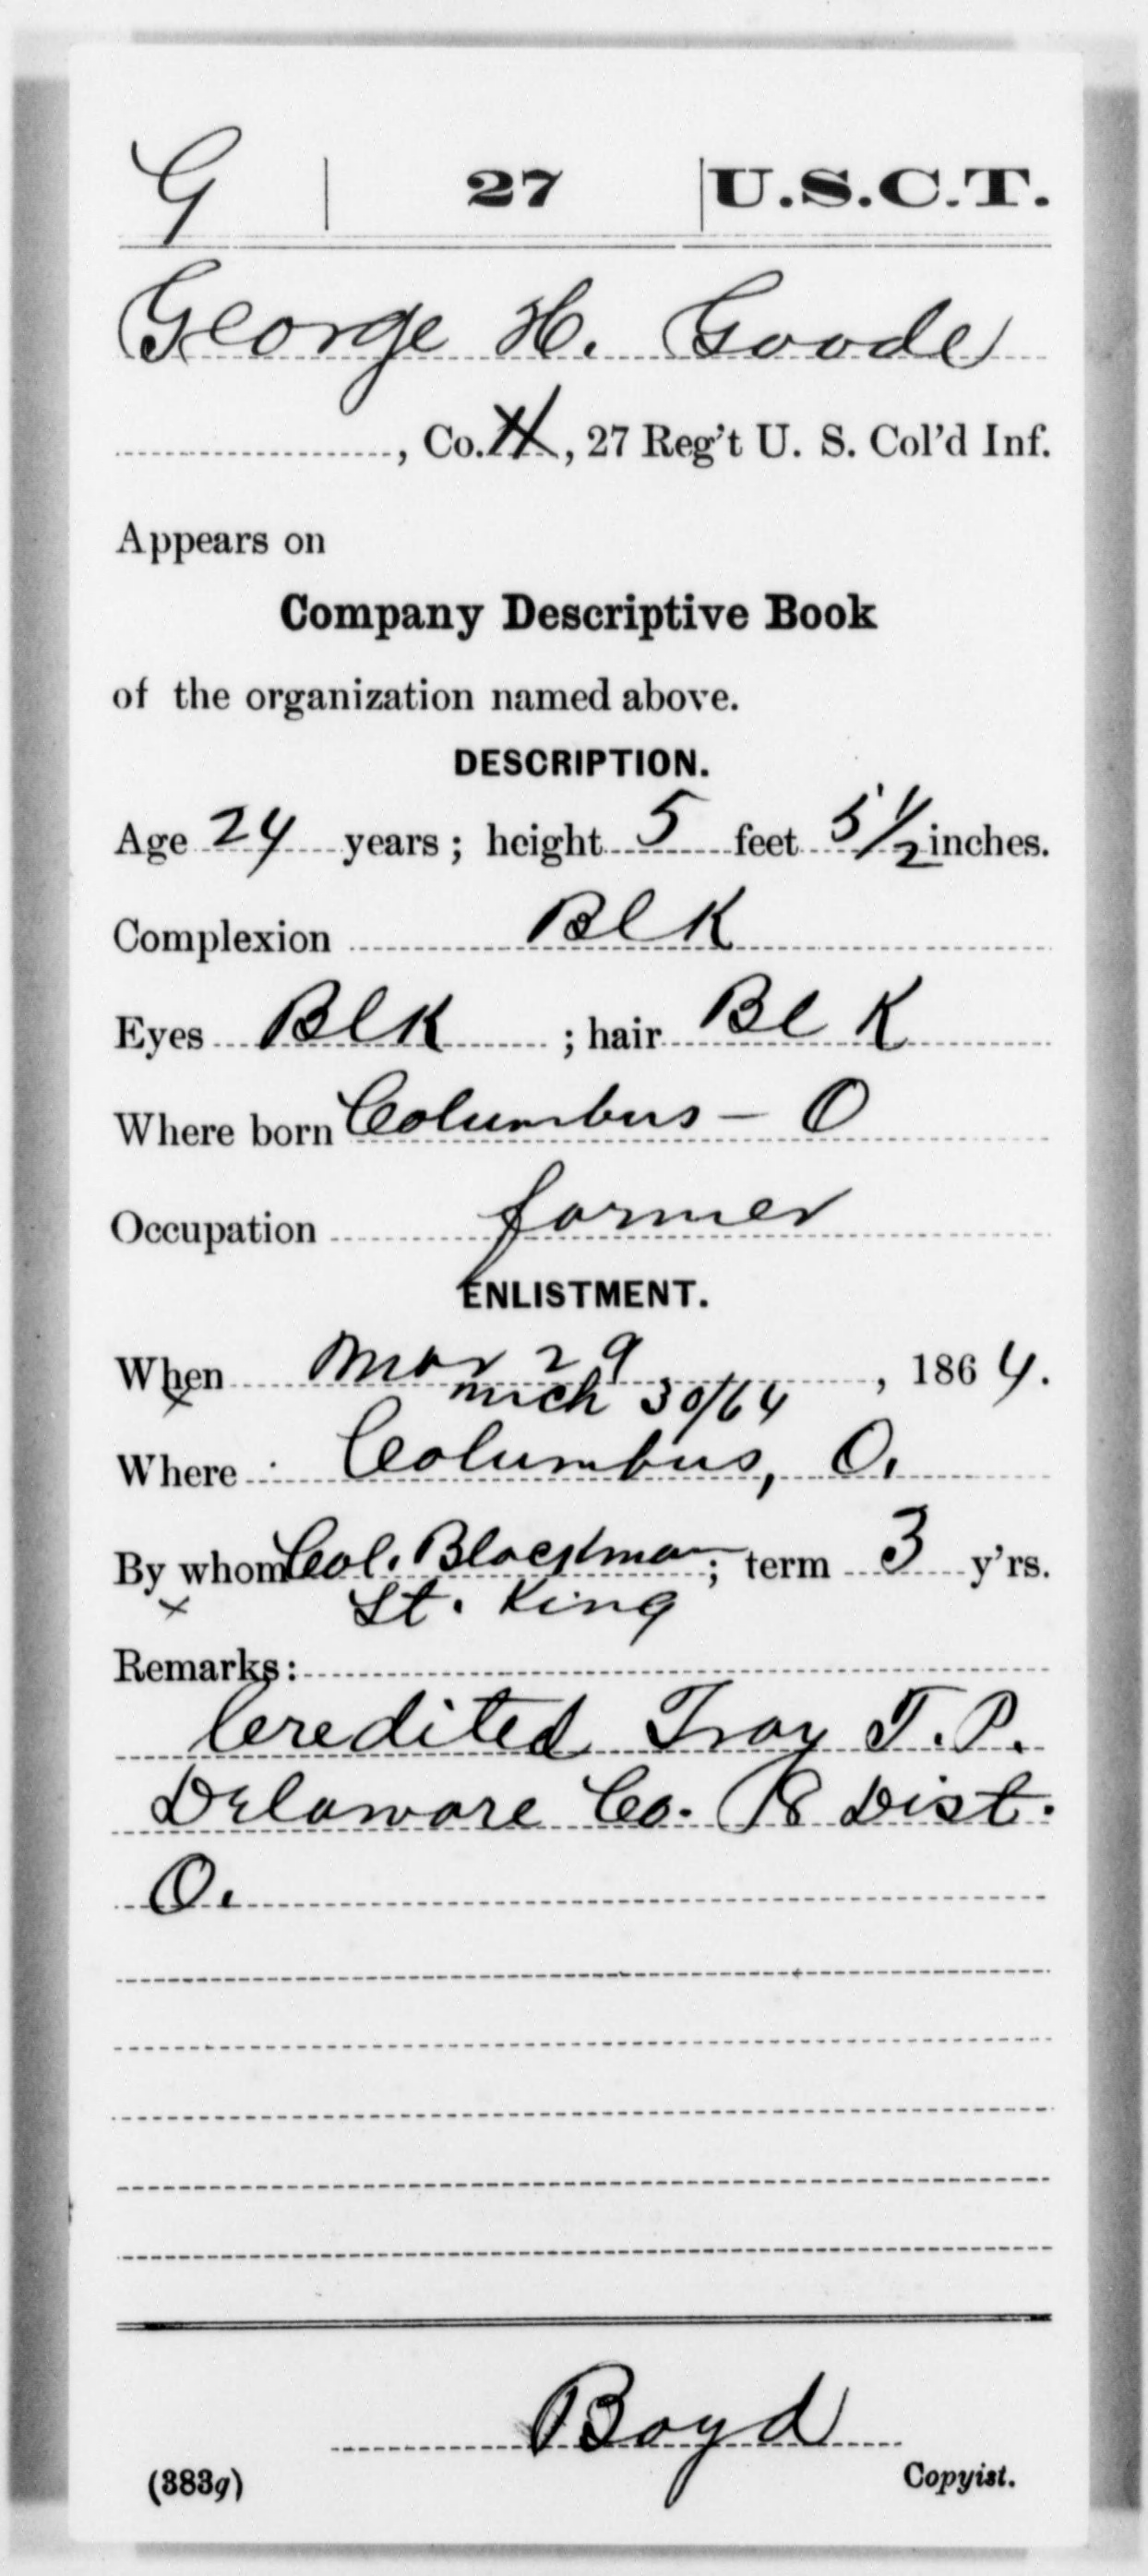 G | 27 | U.S.C.T.
George H. Goode
, Co. H, 27 Reg't U. S. Col'd Inf.
Appears on
Company Descriptive Book
of the organization named above.
DESCRIPTION.
Age 24 years; height 5 feet 5 1/2 inches.
Complexion Blk
Eyes Blk ; hair Blk
Where born Columbus - O
Occupation farmer
ENLISTMENT.
When Mar 29, 1864.
mich 30/64
Where Columbus, O.
By whom Col. Blackman; term 3 y'rs.
x Lt. King
Remarks:
Credited Troy T.P.
Delaware Co. 8 Dist.
O.
Boyd
(383g) Copyist.